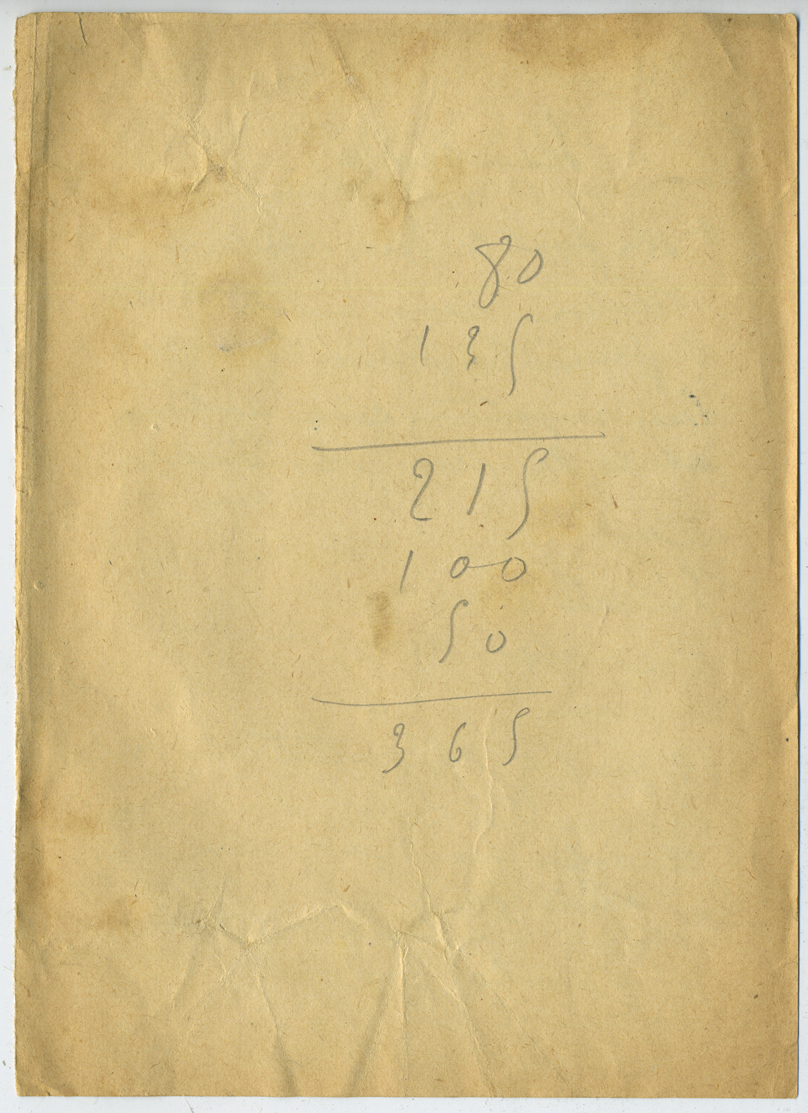 80
135
215
100
50
365